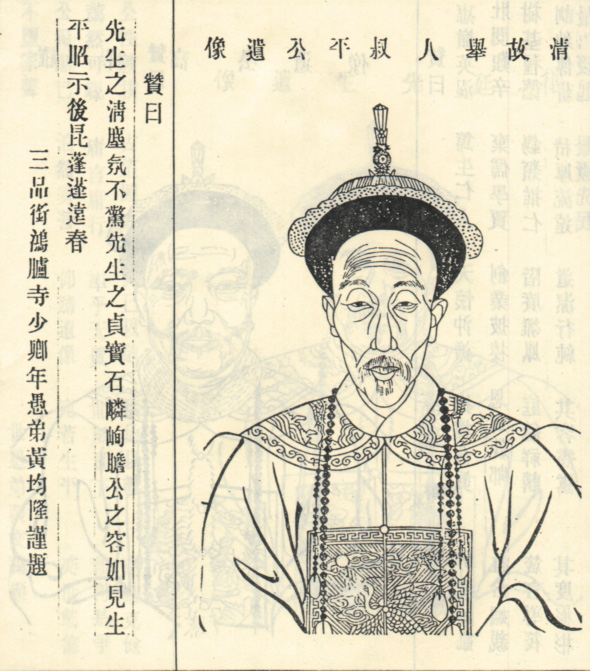 清故舉人叔平公遺像
贊曰
先生之清塵氛不驚先生之貞寶石嶙峋瞻公之容如見生
平昭示後昆蓬蓬遠春
三品銜鴻臚寺少卿年愚弟黃均隆謹題